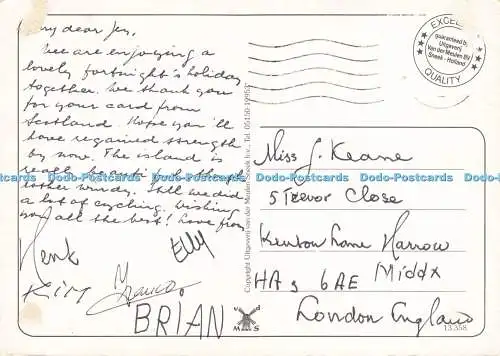 My dear Jen,
We are enjoying a
lovely fortnight's holiday
together. We thank you
for your card from
Scotland. Hope you'll
have regained strength
by now. The island is
really beautiful though
rather windy. Still we did
a lot of cycling. Wishing
you all the best! Love from
Henk
Elly
Kim
BRIAN
Copyright Uitgeverij van der Meulen Sneek bv., Tel. 05150-19953
EXCELLENT
guaranteed by
Uitgeverij
Van der Meulen BV
Sneek - Holland
QUALITY
Miss J. Keane
5 Trevor Close
Kenton Lane Harrow
HA3 6AE Middx
London England
M S
13.358
Dodo-Postcards Dodo-Postcards Dodo-Postcards Dodo-Postcards Dodo-Postcards